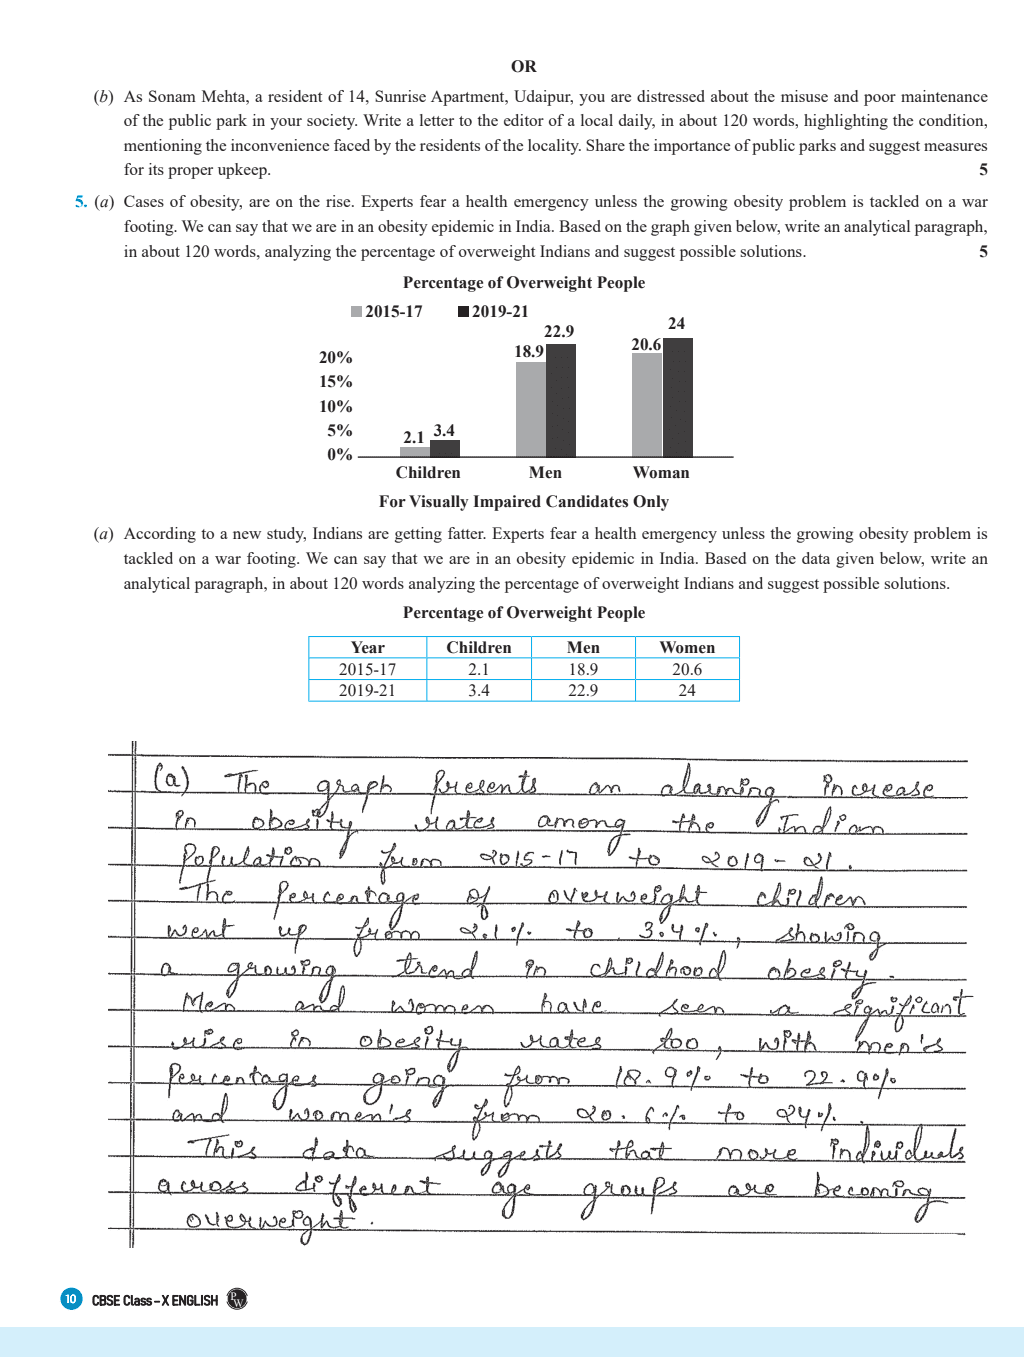 OR
(b) As Sonam Mehta, a resident of 14, Sunrise Apartment, Udaipur, you are distressed about the misuse and poor maintenance
of the public park in your society. Write a letter to the editor of a local daily, in about 120 words, highlighting the condition,
mentioning the inconvenience faced by the residents of the locality. Share the importance of public parks and suggest measures
for its proper upkeep. 5
5. (a) Cases of obesity, are on the rise. Experts fear a health emergency unless the growing obesity problem is tackled on a war
footing. We can say that we are in an obesity epidemic in India. Based on the graph given below, write an analytical paragraph,
in about 120 words, analyzing the percentage of overweight Indians and suggest possible solutions. 5
Percentage of Overweight People
2015-17 2019-21
22.9 24
18.9 20.6
20%
15%
10%
5% 2.1 3.4
0%
Children Men Woman
For Visually Impaired Candidates Only
(a) According to a new study, Indians are getting fatter. Experts fear a health emergency unless the growing obesity problem is
tackled on a war footing. We can say that we are in an obesity epidemic in India. Based on the data given below, write an
analytical paragraph, in about 120 words analyzing the percentage of overweight Indians and suggest possible solutions.
Percentage of Overweight People
Year Children Men Women
2015-17 2.1 18.9 20.6
2019-21 3.4 22.9 24
(a) The graph presents an alarming increase
in obesity rates among the Indian
Population from 2015-17 to 2019-21.
The Percentage of overweight children
went up from 2.1% to 3.4%, showing
a growing trend in childhood obesity.
Men and women have seen a significant
rise in obesity rates too, with men's
Percentages going from 18.9% to 22.9%
and women's from 20.6% to 24%.
This data suggests that more individuals
across different age groups are becoming
overweight.
10 CBSE Class – X ENGLISH PW